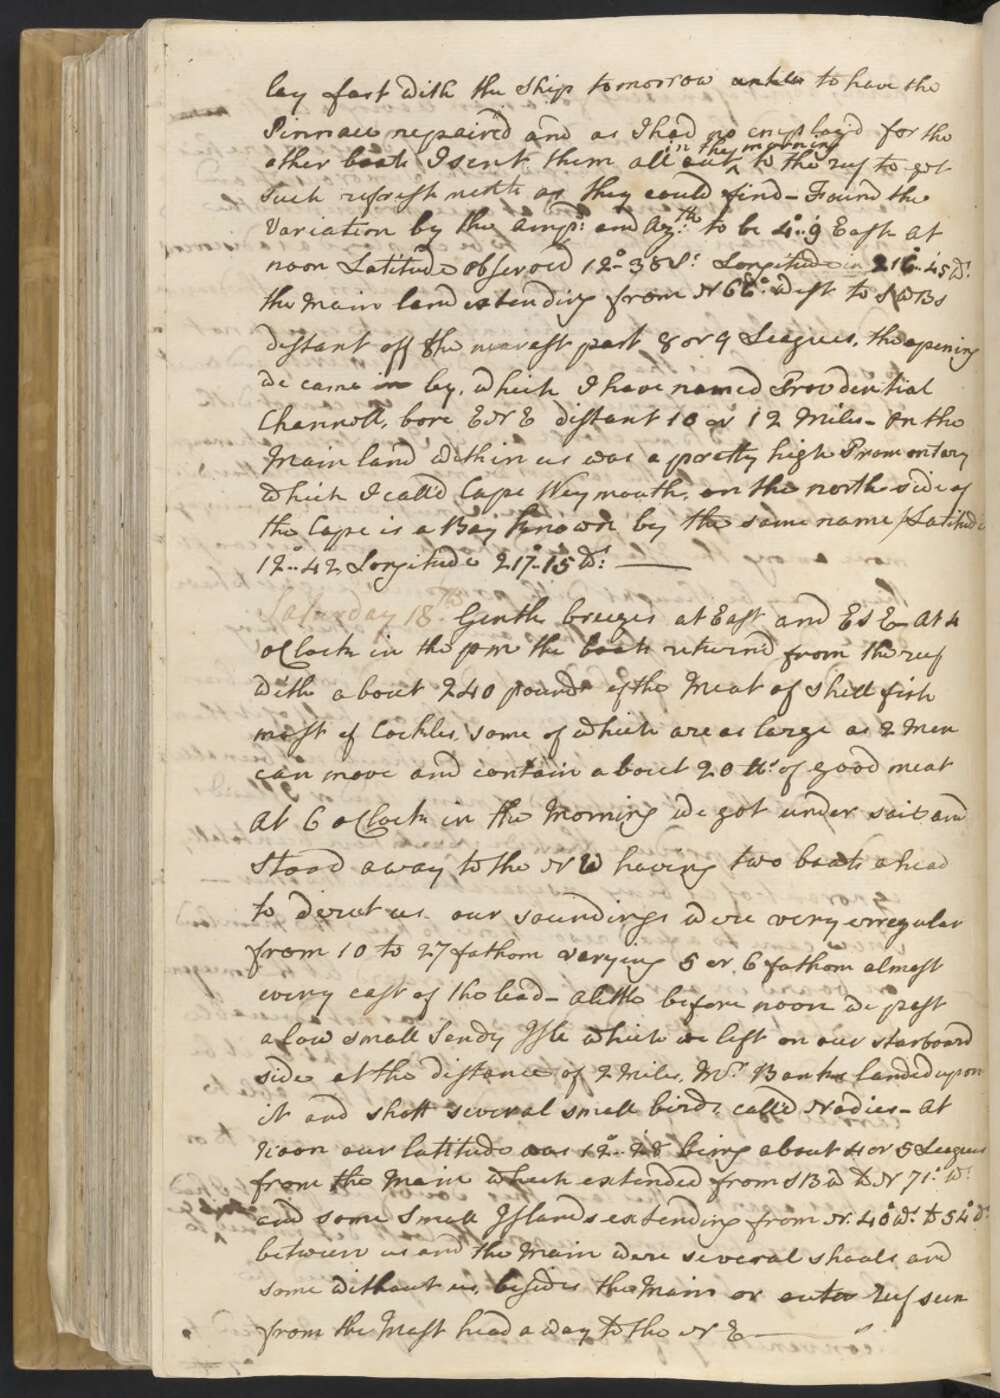 lay fast with the ship tomorrow to have the
Pinnace repair'd and as I had no employ'd for the
in the morning
other boats I sent them all out ^ to the reef to get
such refresh ments as they could find – Found the
Variation by the Amp.d and Az.th to be 4°..9 East At
noon Latitude observed 12°..38 S.t Longitude in 216°..45 W.t
the Main land extending from N 66° West to SWBS
distant off the nearest part 8 or 9 Leagues, the opening
we came in by, which I have named Providential
Channell, bore ENE distant 10 or 12 Miles – On the
Main land within us was a pretty high Promontary
which I call'd Cape Weymouth, on the north side of
the Cape is a Bay known by the same name / Latitude
12°..42 Longitude 217°..15 W.t ———
Saturday 18.th Gentle breezes at East and ESE – At 4
oClock in the pm the boats return'd from the reef
with about 240 pound of the Meat of shell fish
most of Cockles, some of which are as large as 2 Men
can move and contain about 20 lb.s of good meat
At 6 oClock in the Morning we got under sail and
Stood away to the NW having two boats ahead
to direct us our soundings were very erregular
from 10 to 27 fathom varying 5 or 6 fathom almost
every cast of the lead – a little before noon we past
a low small Sandy Isle which we left on our starboard
side at the distance of 2 Miles, M.r Banks landed upon
it and shott several small birds called Nodies – At
Noon our latitude was 12°..28 being about 4 or 5 Leagues
from the Main which extended from SBW to N 71° W.t
and some Small Islands extending from N. 40° W.t to 54° W.t
between us and the Main were several shoals and
some without us, besides the Main or outer Reef seen
from the Mast head away to the NE ———